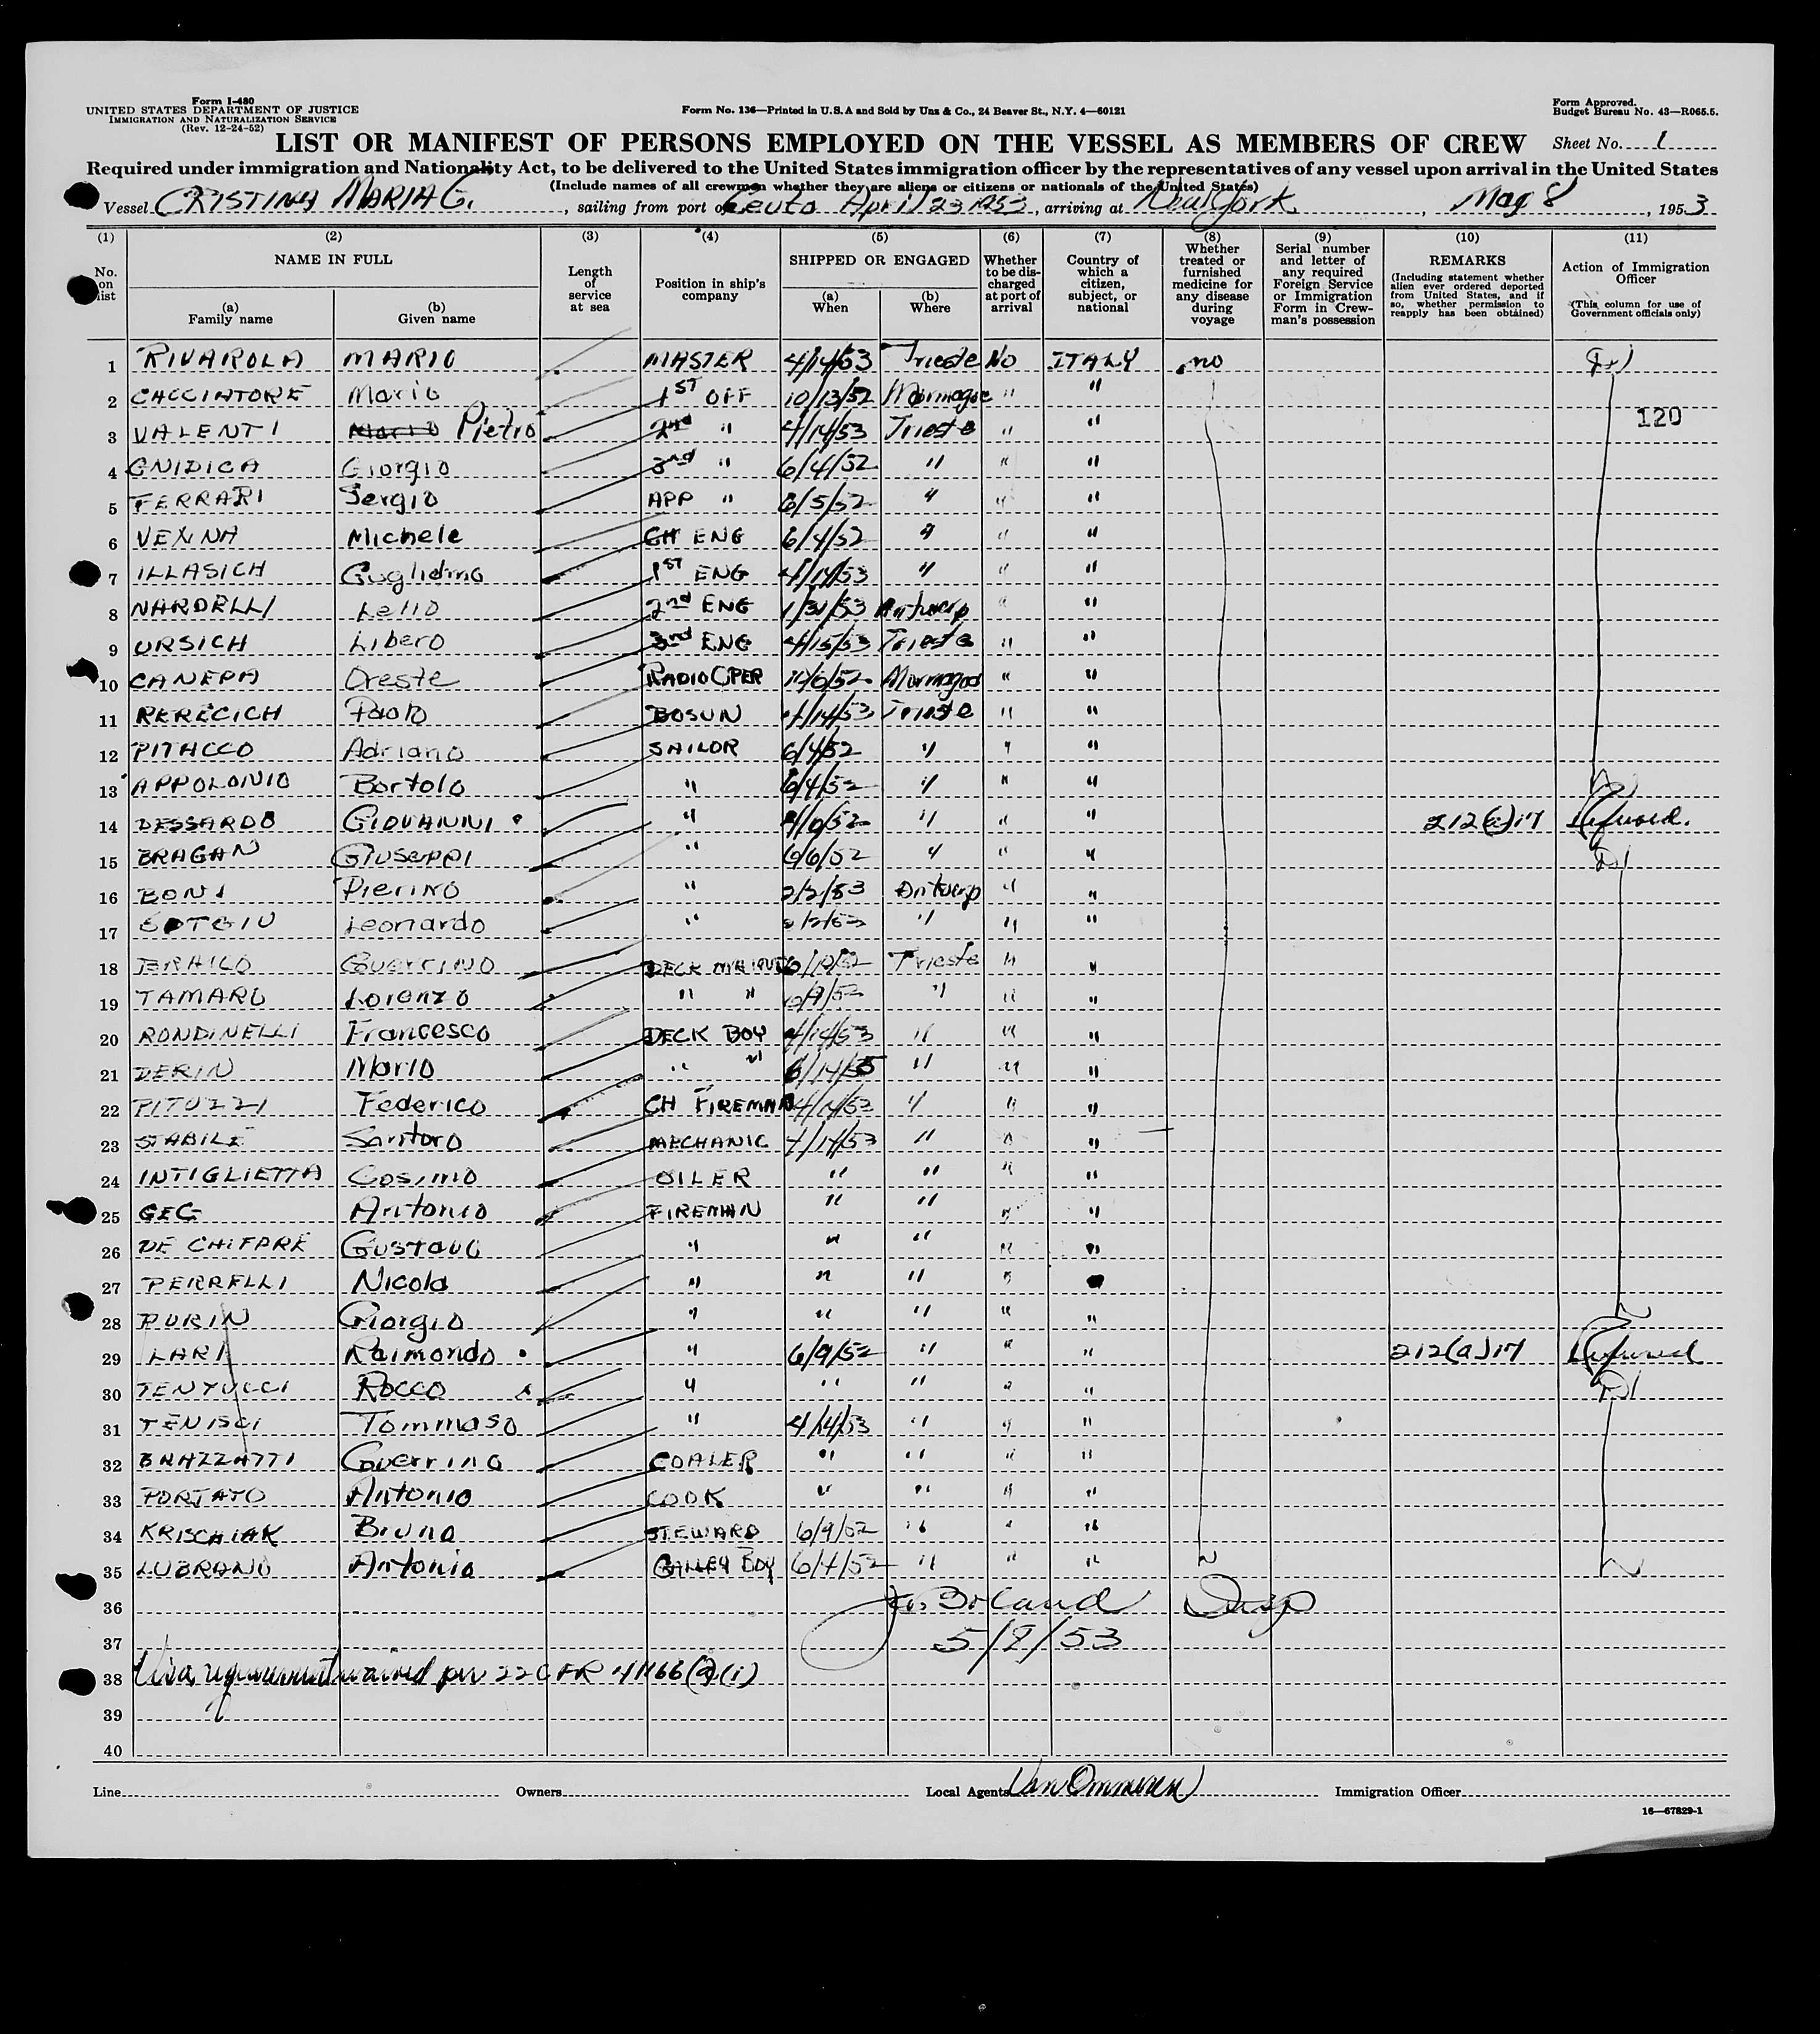 Form I-480
UNITED STATES DEPARTMENT OF JUSTICE
IMMIGRATION AND NATURALIZATION SERVICE
(Rev. 12-24-52)
Form No. 136—Printed in U.S.A and Sold by Unz & Co., 24 Beaver St., N.Y. 4—60121
Form Approved.
Budget Bureau No. 43—R065.5.
LIST OR MANIFEST OF PERSONS EMPLOYED ON THE VESSEL AS MEMBERS OF CREW
Sheet No. 1
Required under immigration and Nationality Act, to be delivered to the United States immigration officer by the representatives of any vessel upon arrival in the United States
(Include names of all crewmen whether they are aliens or citizens or nationals of the United States)
Vessel CRISTINA MARIA G., sailing from port of Ceuta April 23 1953, arriving at New York, May 8, 1953
(1) No. on list
(2) NAME IN FULL
(a) Family name
(b) Given name
(3) Length of service at sea
(4) Position in ship's company
(5) SHIPPED OR ENGAGED
(a) When
(b) Where
(6) Whether to be discharged at port of arrival
(7) Country of which a citizen, subject, or national
(8) Whether treated or furnished medicine for any disease during voyage
(9) Serial number and letter of any required Foreign Service or Immigration Form in Crewman's possession
(10) REMARKS (Including statement whether alien ever ordered deported from United States, and if so, whether permission to reapply has been obtained)
(11) Action of Immigration Officer (This column for use of Government officials only)
1 RIVAROLA MARIO MASTER 4/14/53 Trieste No ITALY no D1
2 CACCIATORE Mario 1ST OFF 10/13/52 " "
120
3 VALENTI Mario Pietro 2nd " 4/14/53 Trieste " "
4 GNIDICA Giorgio 3rd " 6/4/52 " " "
5 FERRARI Sergio APP " 6/5/52 " " "
6 Michele CH ENG 6/4/52 " " "
7 ILLASICH 1ST ENG 4/14/53 " " "
8 NARDELLI Lello 2nd ENG 1/31/53 Antwerp " "
9 URSICH Libero 3rd ENG 4/15/53 Trieste " "
10 CANEPA Oreste RADIO OPER " "
11 RERECICH Paolo BOSUN 4/14/53 Trieste " "
12 PITACCO Adriano SAILOR 6/4/52 " " "
13 APPOLONIO Bortolo " 6/4/52 " " "
14 DESSARDO GIOVANNI " " " " 212(a)17 Refused.
15 BRAGAN Giuseppi " 6/6/52 " " " D1
16 BONI Pierino " 2/2/53 Antwerp " "
17 Leonardo " 2/2/53 " " "
18 BRAICO Guerrino DECK Trieste " "
19 TAMARO Lorenzo " " 6/9/52 " " "
20 RONDINELLI Francesco DECK BOY 4/14/53 " " "
21 DERIN Mario " " " " "
22 PITUZZI Federico CH FIREMAN 4/14/53 " " "
23 STABILE Santoro MECHANIC 4/14/53 " " "
24 INTIGLIETTA Cosimo OILER " " " "
25 GEC Antonio FIREMAN " " " "
26 DE CHIFARE Gustavo " " " " "
27 PERRELLI Nicola " " " " "
28 PURIN Giorgio " " " " "
29 LARI Raimondo " 6/9/52 " " " 212(a)17 Refused
30 TENTUCCI ROCCO " " " " " D1
31 TENISCI Tommaso " 4/14/53 " " "
32 BRAZZATTI Guerrino COALER " " " "
33 PORTATO Antonio COOK " " " "
34 KRISCHIAK Bruno STEWARD 6/9/52 " " "
35 LUBRANO Antonio GALLEY BOY 6/4/52 " " "
36 Boland Insp
37 5/8/53
38 Visa requirement waived per 22 CFR
39
40
Line
Owners
Local Agents Van Ommeren
Immigration Officer
16—67829-1